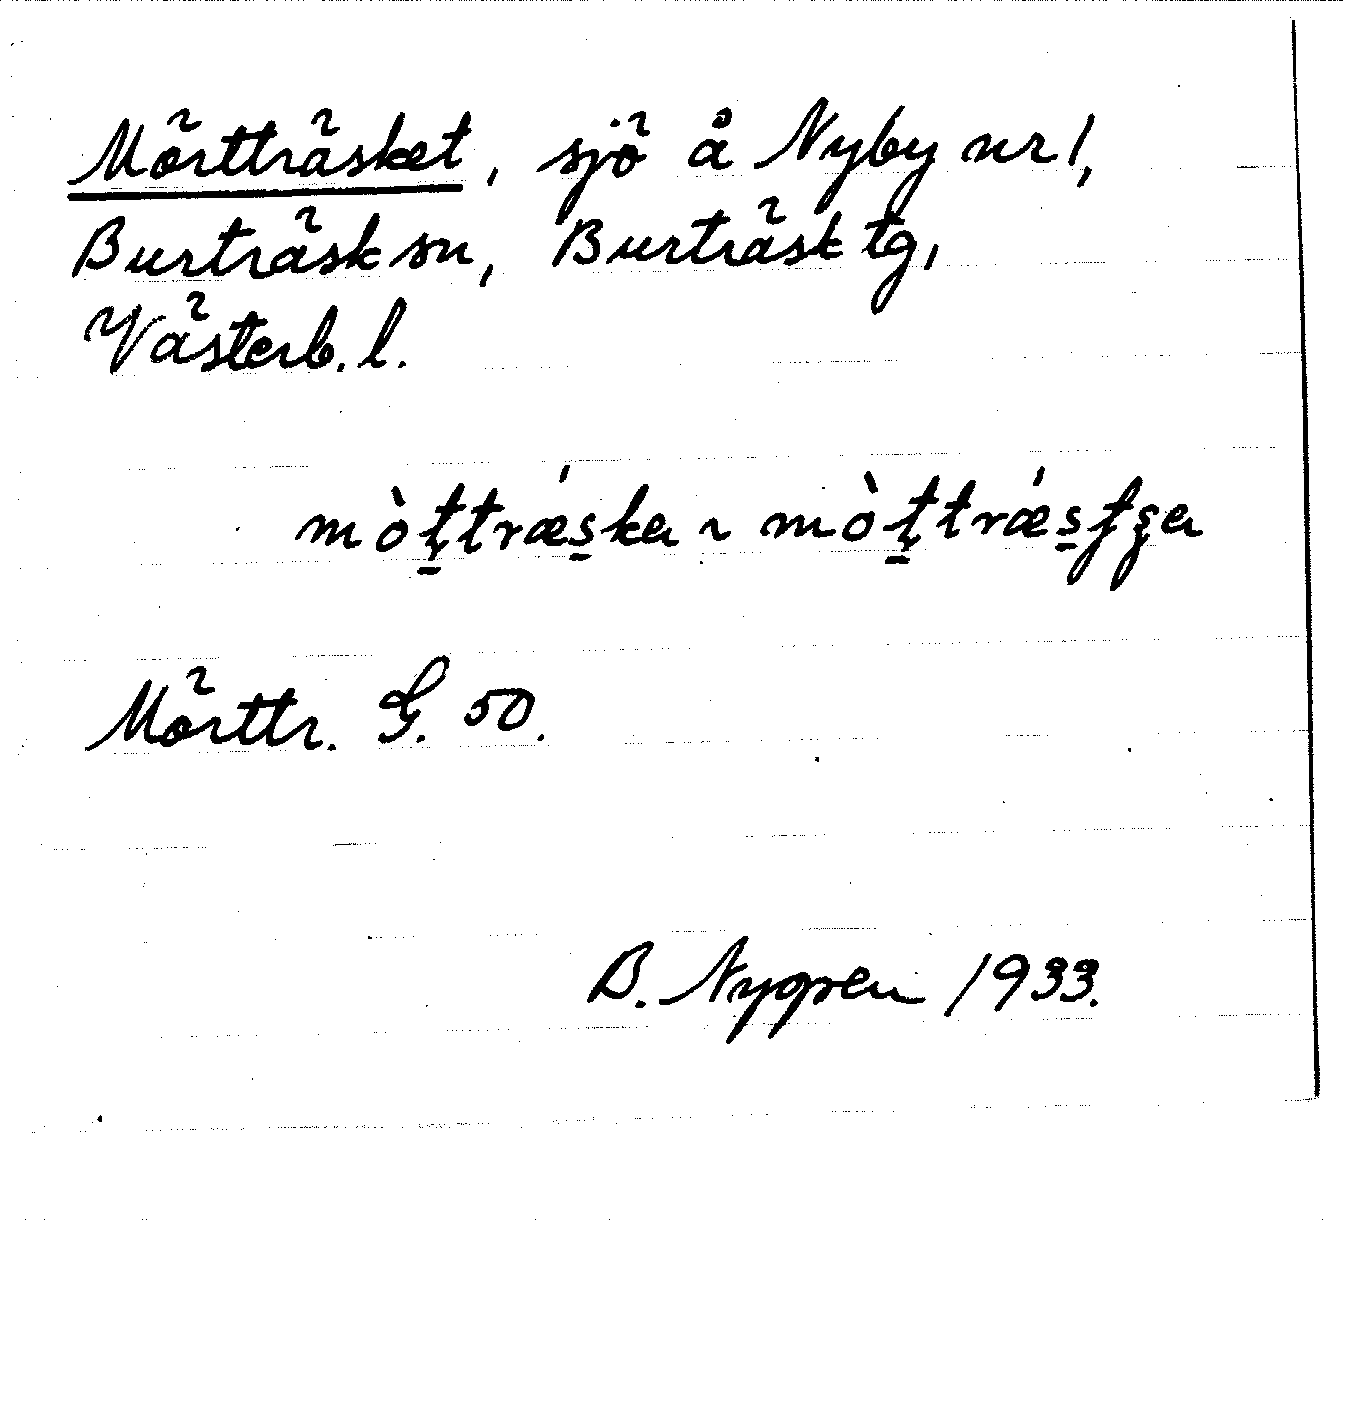 Mörtträsket, sjö å Nyby nr 1,
Burträsk sn, Burträsk tg,
Västerb. l.
mòt̠trǽs̠ka ~ mòt̠trǽs̠
Mörttr. G. 50.
B. Nygren 1933.